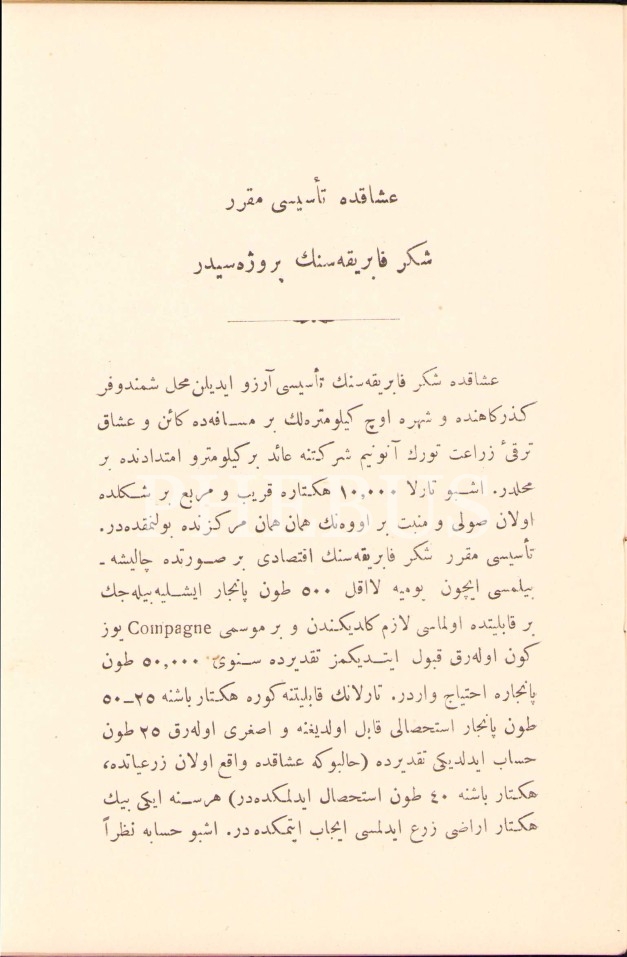 عشاقده تأسیسی مقرر
شکر فابریقه‌سنك پروژه‌سیدر
عشاقده شکر فابریقه‌سنك تأسیسی آرزو ایدیلن محل شمندوفر
کذرکاهنده و شهره اوچ کیلومتره‌لك بر مسافه‌ده کائن و عشاق
ترقیٔ زراعت تورك آنونیم شرکتنه عائد بر کیلومترو امتدادنده بر
محلدر. اشبو تارلا ۱۰,۰۰۰ هکتاره قریب و مربع بر شکلده
اولان صولی و منبت بر اووه‌نك همان همان مرکزنده بولنمقده‌در.
تأسیسی مقرر شکر فابریقه‌سنك اقتصادی بر صورتده چالیشه -
بیلمسی ایچون یومیه لااقل ۵۰۰ طون پانجار ایشلیه‌بیله‌جك
بر قابلیتده اولماسی لازم کلدیکندن و بر موسمی Compagne یوز
کون اوله‌رق قبول ایتدیکمز تقدیرده سنوی ۵۰,۰۰۰ طون
پانجاره احتیاج واردر. تارلانك قابلیتنه کوره هکتار باشنه ۲۵-۵۰
طون پانجار استحصالی قابل اولدیغنه و اصغری اوله‌رق ۲۵ طون
حساب ایدلدیکی تقدیرده (حالبوکه عشاقده واقع اولان زرعیاتده،
هکتار باشنه ٤۰ طون استحصال ایدلمکده‌در) هر سنه ایکی بیك
هکتار اراضی زرع ایدلمسی ایجاب ایتمکده‌در. اشبو حسابه نظراً
PHEBUS